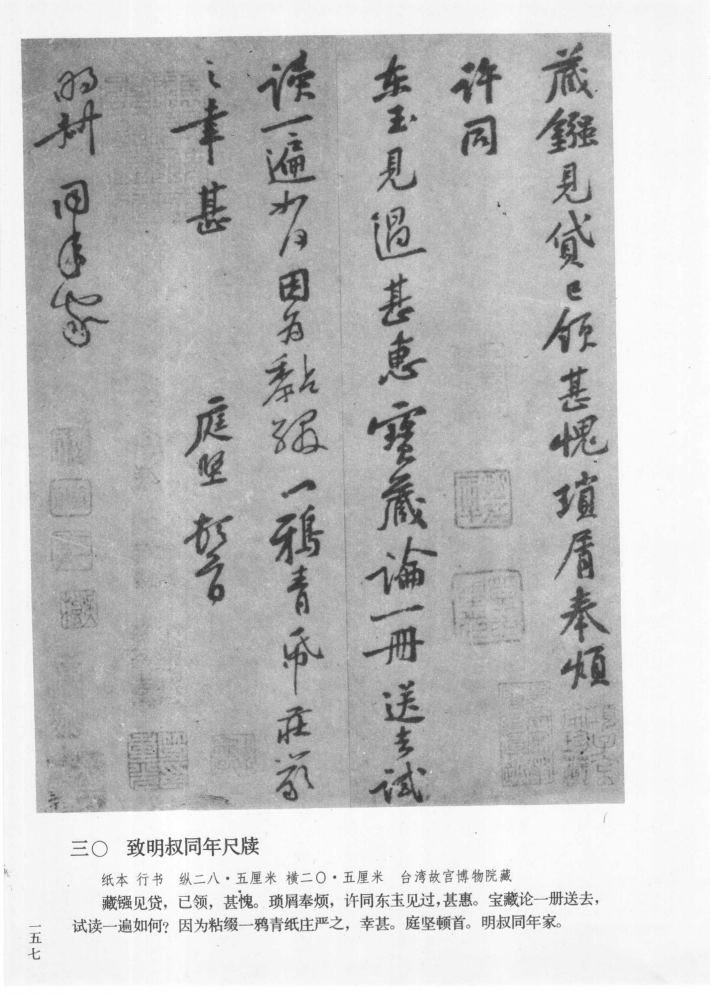 藏鏹見貸已領甚愧瑣屑奉煩
許同
东玉見過甚惠寶藏論一冊送去试
读一遍如何因为黏缀一鴉青帋莊嚴
之幸甚
庭堅頓首
明叔同年家
三〇 致明叔同年尺牍
纸本 行书 纵二八·五厘米 横二〇·五厘米 台湾故宫博物院藏
藏镪见贷，已领，甚愧。琐屑奉烦，许同东玉见过，甚惠。宝藏论一册送去，
试读一遍如何？因为粘缀一鸦青纸庄严之，幸甚。庭坚顿首。明叔同年家。
一五七